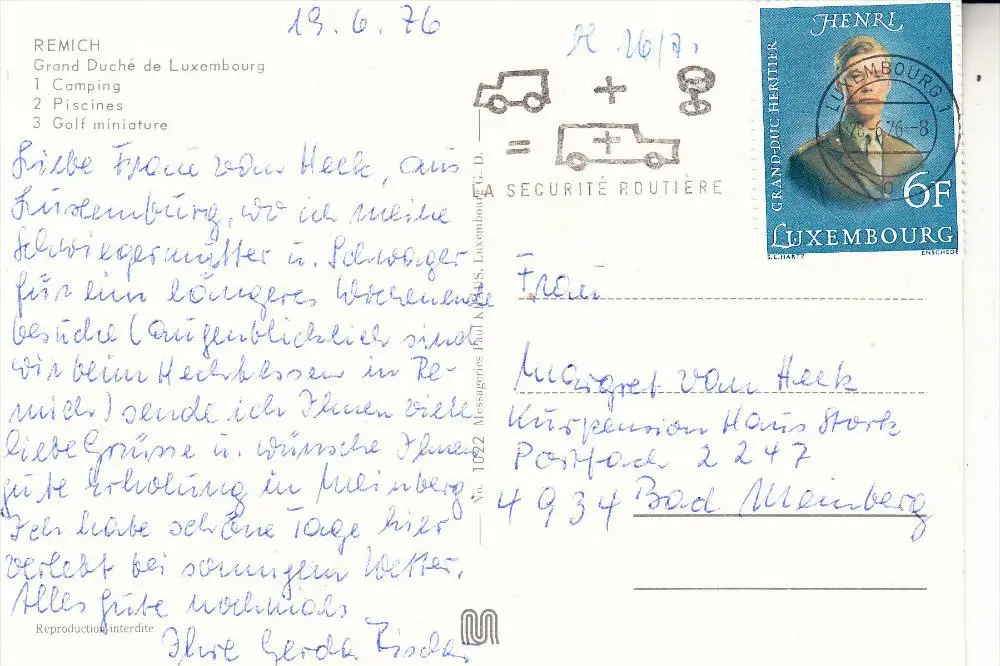 19.6.76
REMICH
Grand Duché de Luxembourg
1 Camping
2 Piscines
3 Golf miniature
Liebe Frau van Heek, aus
Luxemburg, wo ich meine
Schwiegermutter u. Schwager
für ein längeres Wochenende
besuche (augenblicklich sind
wir beim Hechtessen in Re-
mich) sende ich Ihnen viele
liebe Grüsse u. wünsche Ihnen
gute Erholung in Meinberg.
Ich habe schöne Tage hier
verlebt bei sonnigem Wetter.
Alles Gute nochmals
Ihre Gerda
Reproduction interdite
No. 1022 Messageries Paul KRAUS, Luxembourg G. D.
26/7.
+
=
+
LA SECURITÉ ROUTIÈRE
HENRI
GRAND-DUC HERITIER
6F
LUXEMBOURG
S.L. HARTZ
ENSCHEDE
LUXEMBOURG 1
6.76-8
Frau
Margret van Heek
Kurpension Haus Stork
Postfach 2247
4934 Bad Meinberg